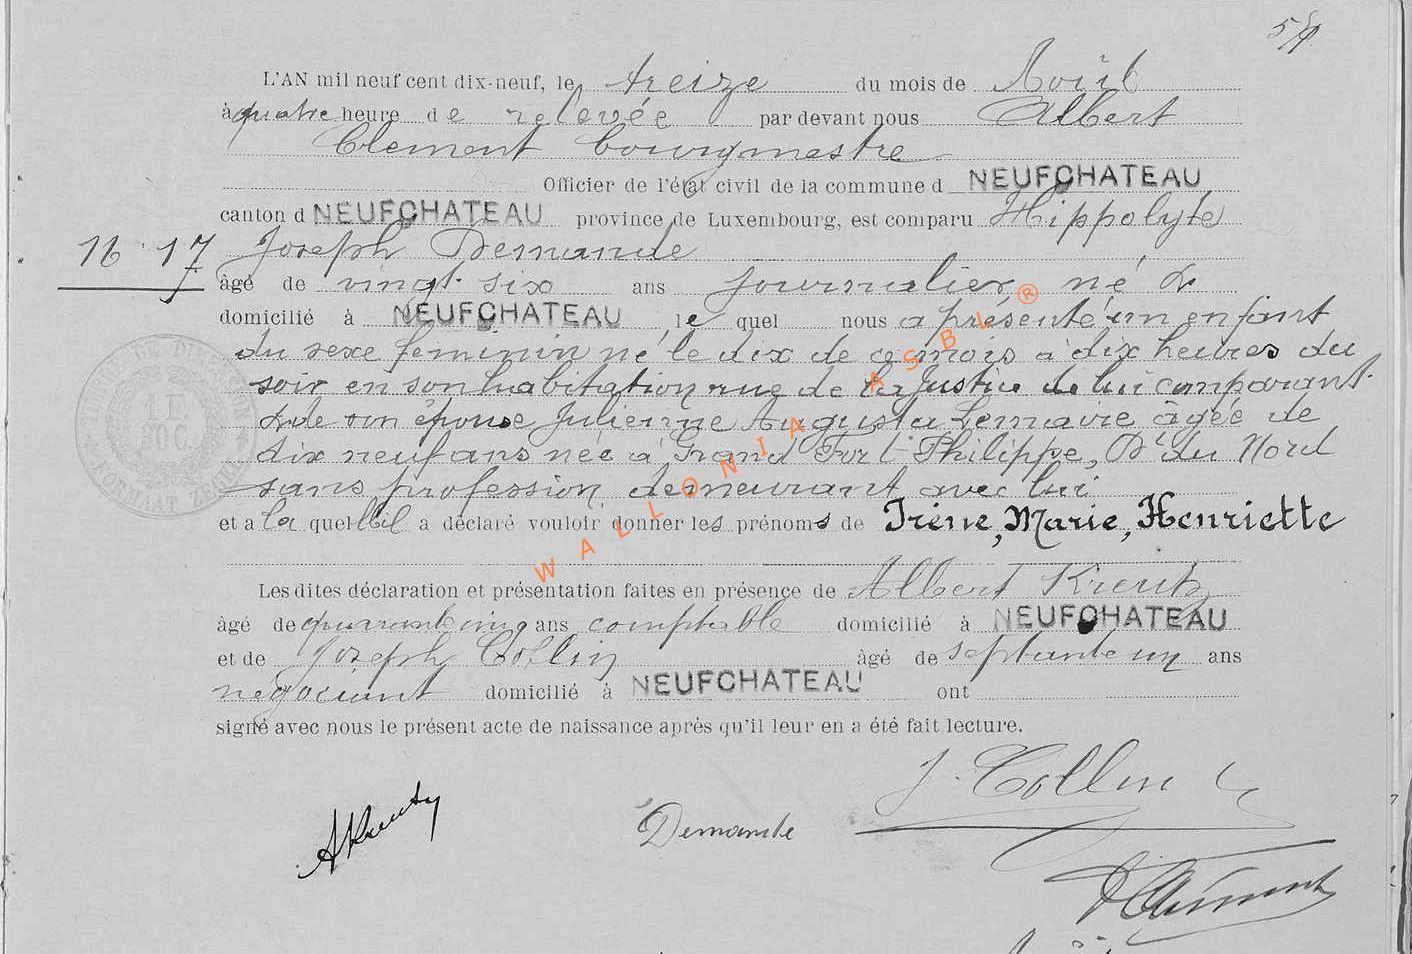 L'AN mil neuf cent dix-neuf, le treize du mois de Août
à quatre heure de relevée par devant nous Albert
Clement bourgmestre
Officier de l'état civil de la commune d NEUFCHATEAU
canton d NEUFCHATEAU province de Luxembourg, est comparu Hippolyte
16 17 Joseph Demande
âgé de vingt-six ans journalier né &
domicilié à NEUFCHATEAU le quel nous a présenté un enfant
du sexe feminin né le dix de ce mois à dix heures du
soir en son habitation rue de la Justice de lui comparant
& de son épouse Julienne Augusta Lemaire âgée de
dix neuf ans née à Grand Fort Philippe, Dt du Nord
sans profession demeurant avec lui
et a la quel il a déclaré vouloir donner les prénoms de Irène, Marie, Henriette
Les dites déclaration et présentation faites en présence de Albert Kreutz
âgé de quarante cinq ans comptable domicilié à NEUFCHATEAU
et de Joseph Collin âgé de septante un ans
négociant domicilié à NEUFCHATEAU ont
signé avec nous le présent acte de naissance après qu'il leur en a été fait lecture.
J. Collin
AKreutz
Demande
AClément
WALLONIA ASBL ®